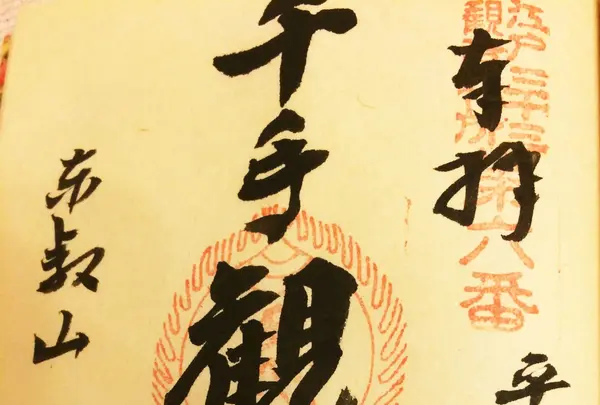 奉拝
平
江戸三十三
観音札所
第六番
千手観
東叡山